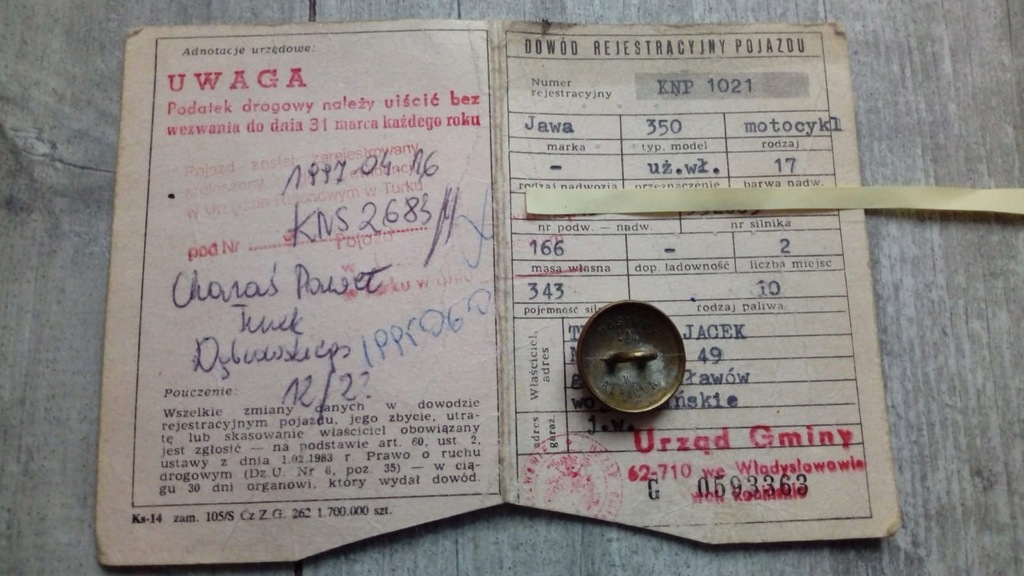 Adnotacje urzędowe:
UWAGA
Podatek drogowy należy uiścić bez
wezwania do dnia 31 marca każdego roku
Pojazd został zarejestrowany
w Urzędzie Rejonowym w Turku
1997 04 16
pod Nr KNS 2683
Turek
12/2?
Pouczenie:
Wszelkie zmiany danych w dowodzie
rejestracyjnym pojazdu, jego zbycie, utra-
tę lub skasowanie właściciel obowiązany
jest zgłosić — na podstawie art. 60, ust. 2,
ustawy z dnia 1.02.1983 r. Prawo o ruchu
drogowym (Dz. U. Nr 6, poz. 35) — w cią-
gu 30 dni organowi, który wydał dowód.
Ks-14 zam. 105/S Cz Z.G. 262 1.700.000 szt.
DOWÓD REJESTRACYJNY POJAZDU
Numer
rejestracyjny KNP 1021
Jawa 350 motocykl
marka typ, model rodzaj
- uż.wł. 17
rodzaj nadwozia przeznaczenie barwa nadw.
nr podw. — nadw. nr silnika
166 - 2
masa własna dop. ładowność liczba miejsc
343 10
pojemność rodzaj paliwa
Właściciel
adres
JACEK
49
ławów
ńskie
adres
garaż. j.w.
Urząd Gminy
62-710 we Władysławowie
woj. Konińskie
G 0593363